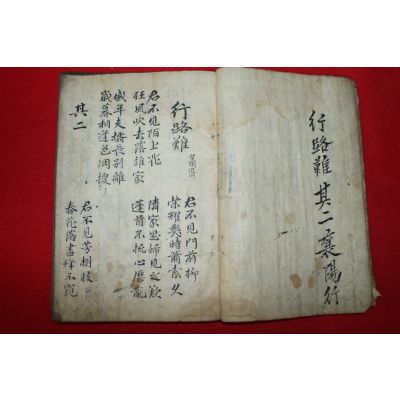 行路難其二襄陽行
行路難
君不見門前柳
榮耀幾時蕭索久
君不見陌上花
狂風吹去落誰家
隣家思婦見之歎
蓬首不梳心歷亂
盛年夫婿長別離
歲暮相逢色凋換
其二
君不見芳樹枝
春花落盡蜂不窺